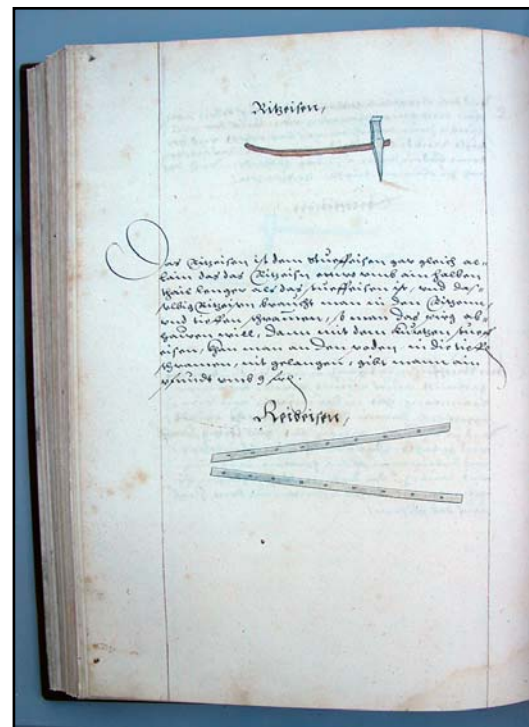 Ritzeisen,
Das Ritzeisen ist dem Stueffeisen gar gleich al-
lain das das Ritzeisen umb ain halben
thail lenger als das stueffeisen ist, und das-
selbig Ritzeisen braucht man in den Ritzenn,
und tieffen schramen, so man das pirg ab-
hauen will, dann mit dem khurtzen stueff
eisen, khan man an den poden in die tieffe
schramen, nit gelangen, gibt mann ain
pfundt umb 9
Reideisen,